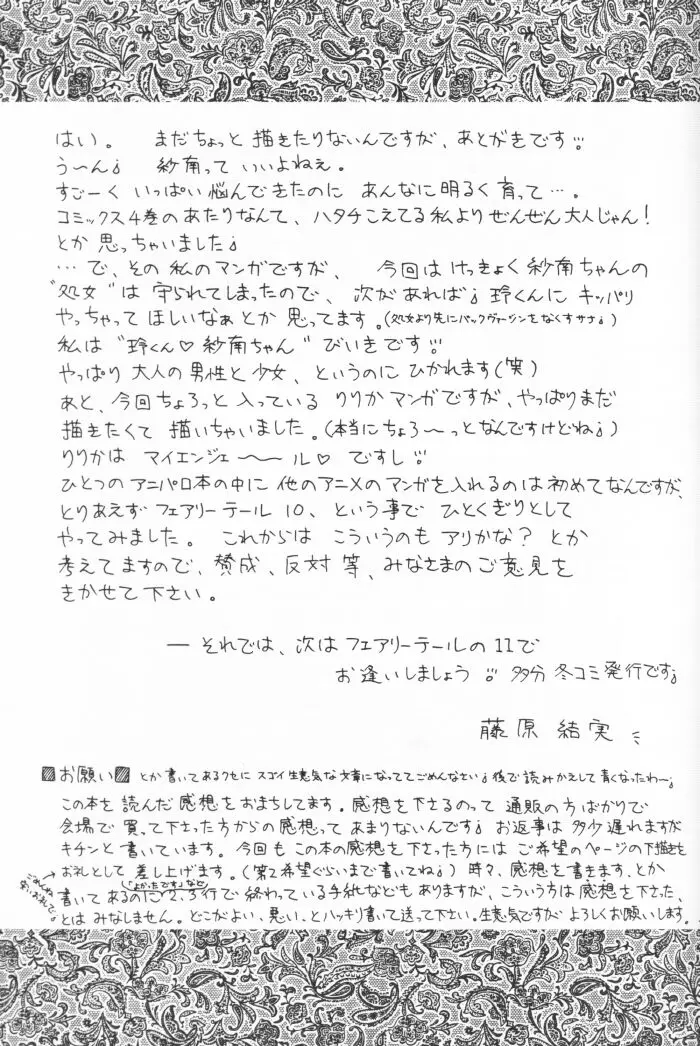 はい。 まだちょっと描きたりないんですが、あとがきです!!
う〜ん。 紗南っていいよねぇ。
すごーく いっぱい悩んできたのに あんなに明るく育って…。
コミックス4巻のあたりなんて、ハタチこえてる私よりぜんぜん大人じゃん!
とか思っちゃいました。
あと、今回ちょろっと入っている りりかマンガですが、やっぱりまだ
描きたくて描いちゃいました。(本当にちょろ〜っとなんですけどね。)
りりかは マイエンジェ〜〜ル♡ ですし!!
ひとつのアニパロ本の中に他のアニメのマンガを入れるのは初めてなんですが、
とりあえず フェアリーテール10、という事で ひとくぎりとして
やってみました。 これからは こういうのも アリかな? とか
考えてますので、賛成、反対 等、みなさまのご意見を
きかせて下さい。
― それでは、次は フェアリーテールの11で
お逢いしましょう!! 多分 冬コミ発行です。
藤原 結実
お願い とか書いてあるクセに スゴイ生意気な文章になっててごめんなさい。後で読みかえして青くなったわ〜。
この本を読んだ感想をおまちしてます。感想を下さるのって 通販の方ばかりで
会場で買って下さった方からの感想って あまりないんです。お返事は多少遅れますが
キチンと書いています。今回も この本の感想を下さった方には ご希望のページの下描きを
お礼として差し上げます。(第2希望ぐらいまで書いてね。) 時々、感想を書きます、とか
書いてあるのに2、3行で終わっている手紙などもありますが、こういう方は感想を下さった、
とはみなしません。どこがよい、悪い、とハッキリ書いて送って下さい。生意気ですが よろしくお願いします。